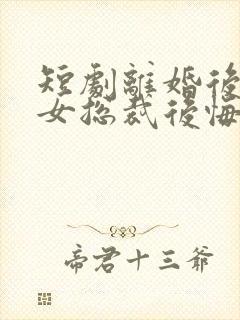 短劇離婚後
女总裁後悔
帝君十三爺